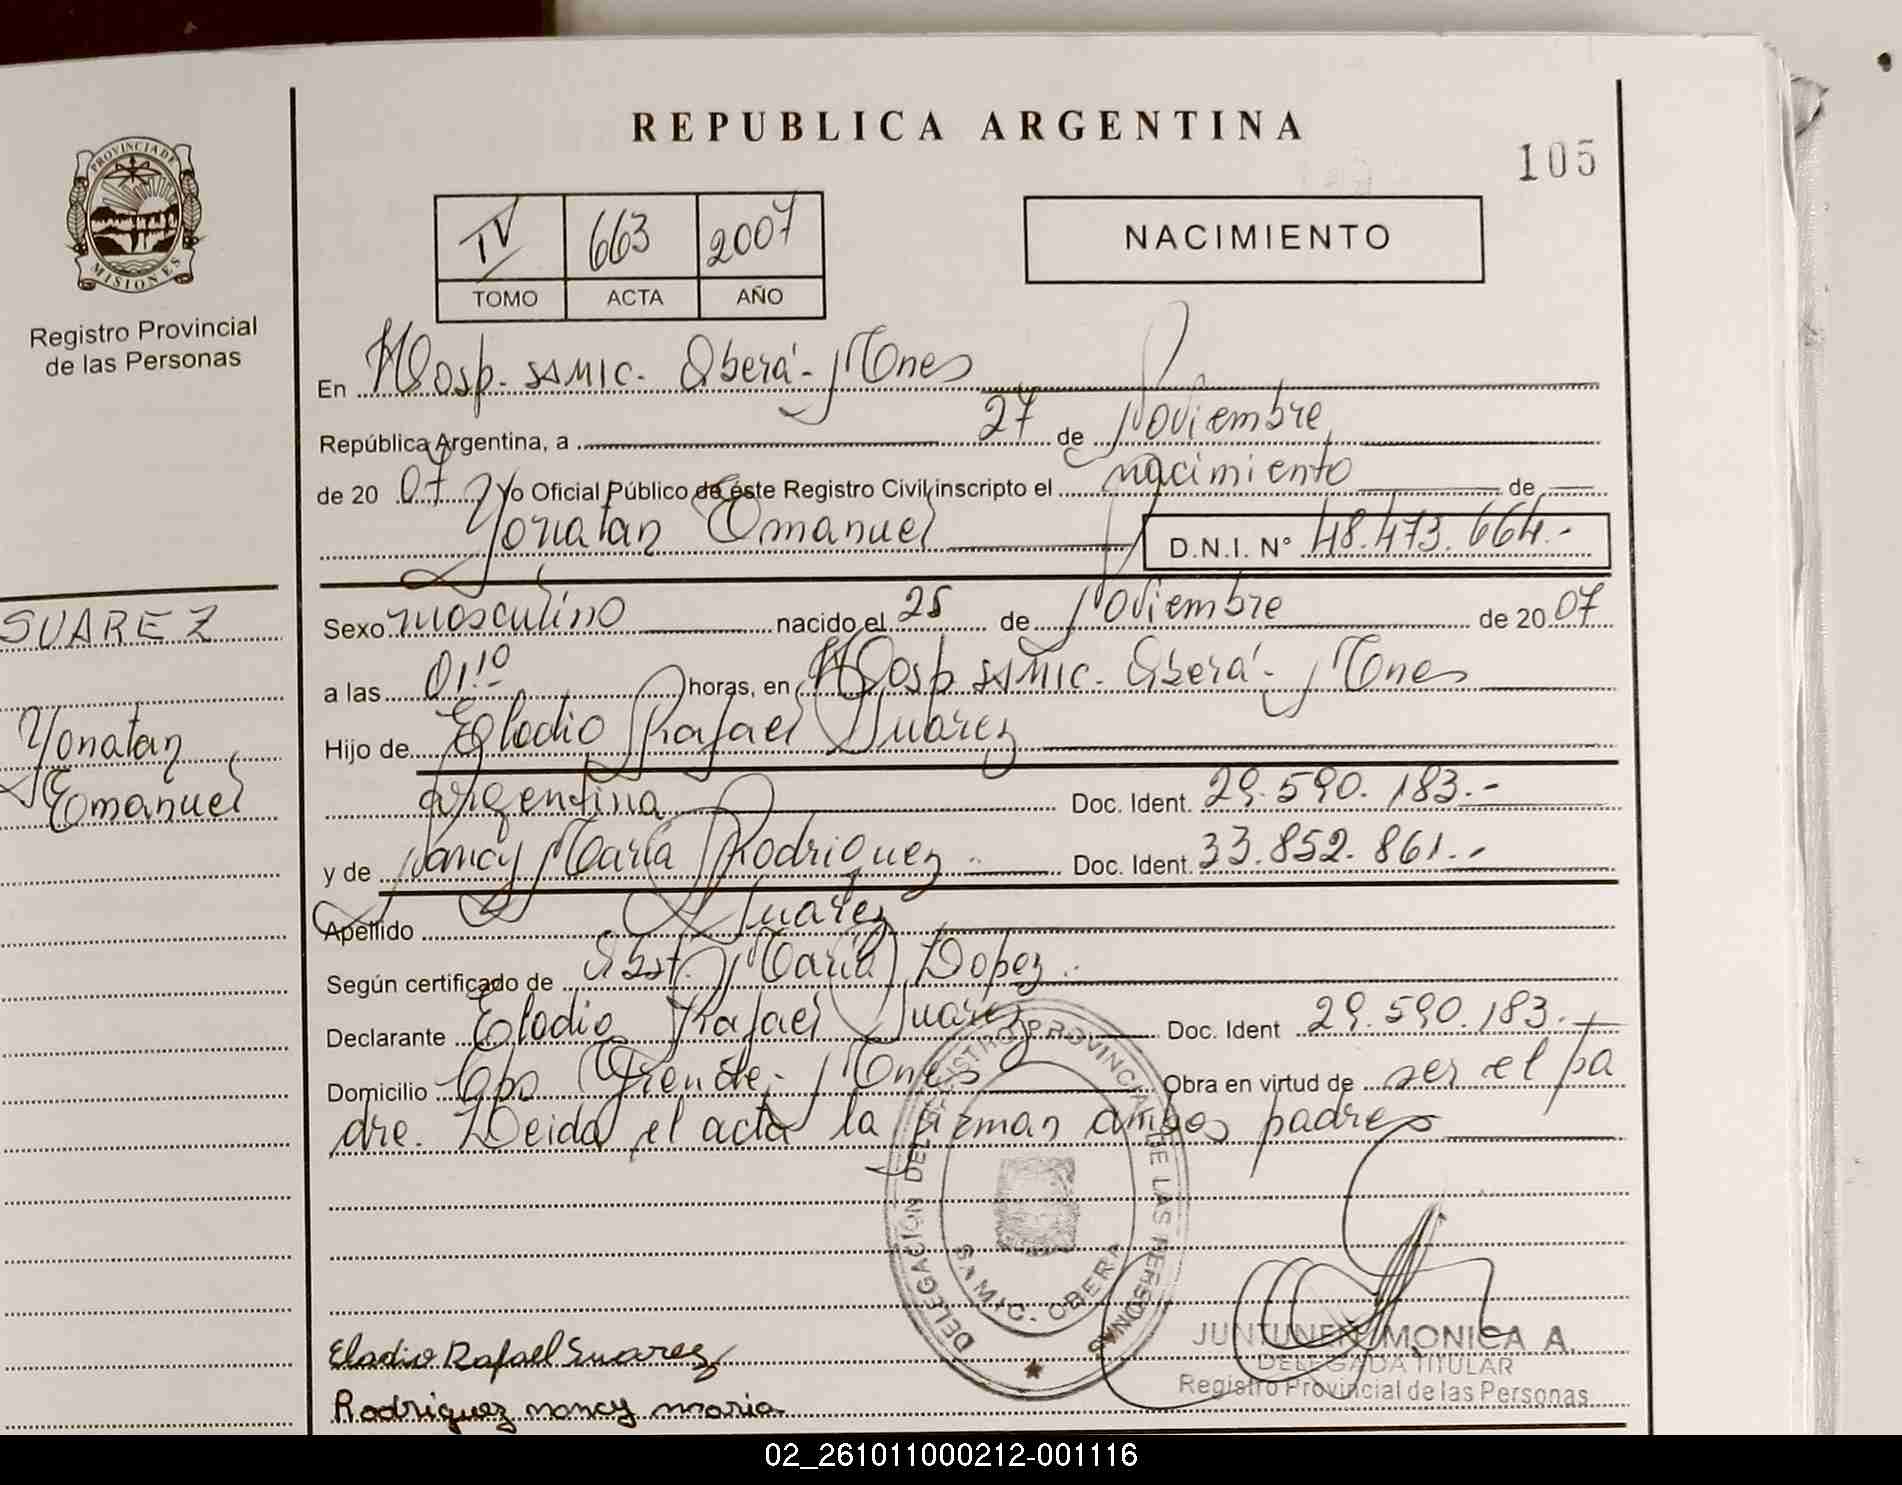 REPUBLICA ARGENTINA
105
PROVINCIA DE
MISIONES
Registro Provincial
de las Personas
IV 663 2007
TOMO ACTA AÑO
NACIMIENTO
En Hosp. SAMIC. Oberá - Mnes
República Argentina, a 27 de Noviembre
de 20 07 Yo Oficial Público de éste Registro Civil, inscripto el nacimiento de
Yonatan Emanuel D.N.I. Nº 48.473.664.-
SUAREZ
Yonatan
Emanuel
Sexo masculino nacido el 25 de Noviembre de 20 07
a las 01:10 horas, en Hosp SAMIC. Oberá - Mnes
Hijo de Eladio Rafael Suarez
argentina Doc. Ident. 29.590.183.-
y de Nancy María Rodriguez Doc. Ident. 33.852.861.-
Apellido Suarez
Según certificado de Obst. María Lopez
Declarante Eladio Rafael Suarez Doc. Ident 29.590.183.-
Domicilio Cpo Grande - Mnes Obra en virtud de ser el pa
dre. Leida el acta la firman ambos padres
DELEGACIÓN DEL REGISTRO PROVINCIAL DE LAS PERSONAS
SAMIC - OBERA
JUNTUNEN MONICA A.
DELEGADA TITULAR
Registro Provincial de las Personas
Eladio Rafael Suarez
Rodriguez nancy maria
02_261011000212-001116